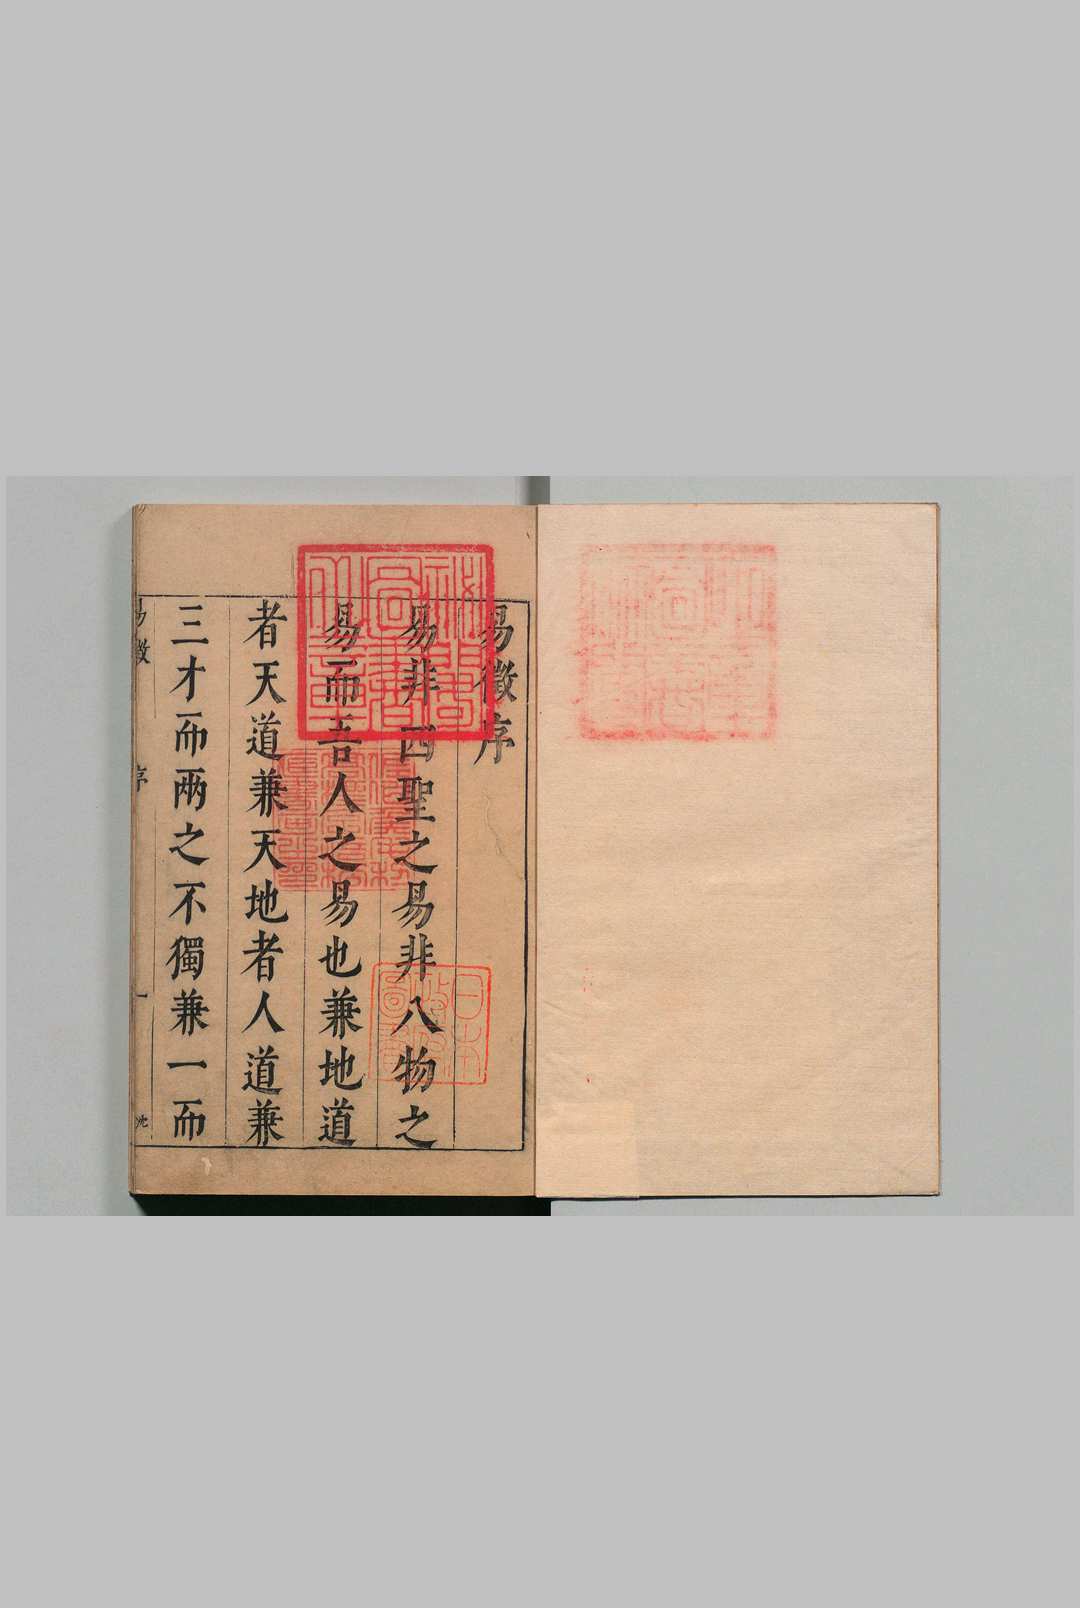 易徵序
易非四聖之易非八物之
易而吾人之易也兼地道
者天道兼天地者人道兼
三才而兩之不獨兼一而
易徵
序
一
沈
祕閣圖書之章
日本政府圖書